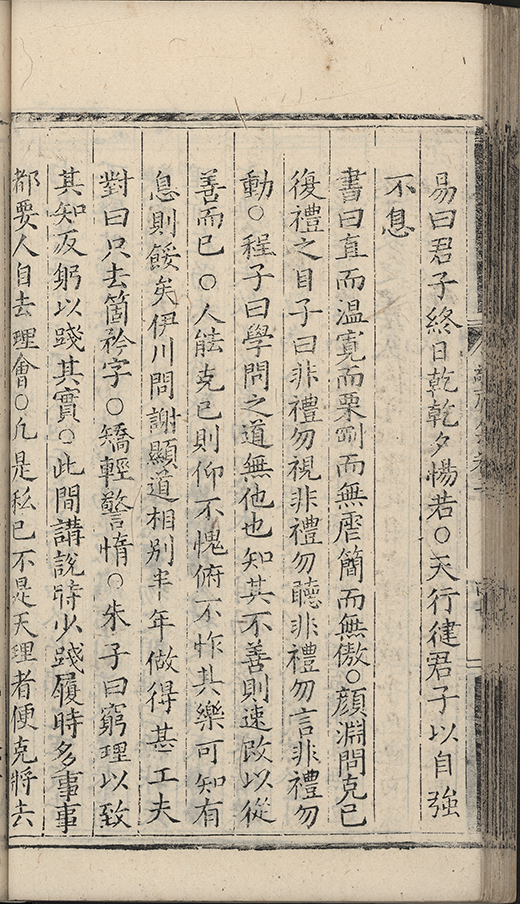 易曰君子終日乾乾夕惕若○天行健君子以自強
不息
書曰直而溫寬而栗剛而無虐簡而無傲○顏淵問克己
復禮之目子曰非禮勿視非禮勿聽非禮勿言非禮勿
動○程子曰學問之道無他也知其不善則速改以從
善而已○人能克己則仰不愧俯不怍其樂可知有
息則餒矣伊川問謝顯道相別半年做得甚工夫
對曰只去箇矜字○矯輕警惰○朱子曰窮理以致
其知反躬以踐其實○此間講說時少踐履時多事事
都要人自去理會○凡是私己不是天理者便克將去